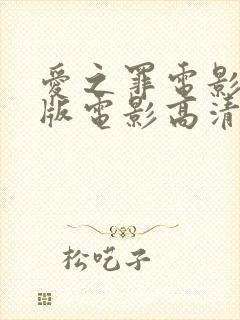 愛之罪電影
版電影高清
松吃子